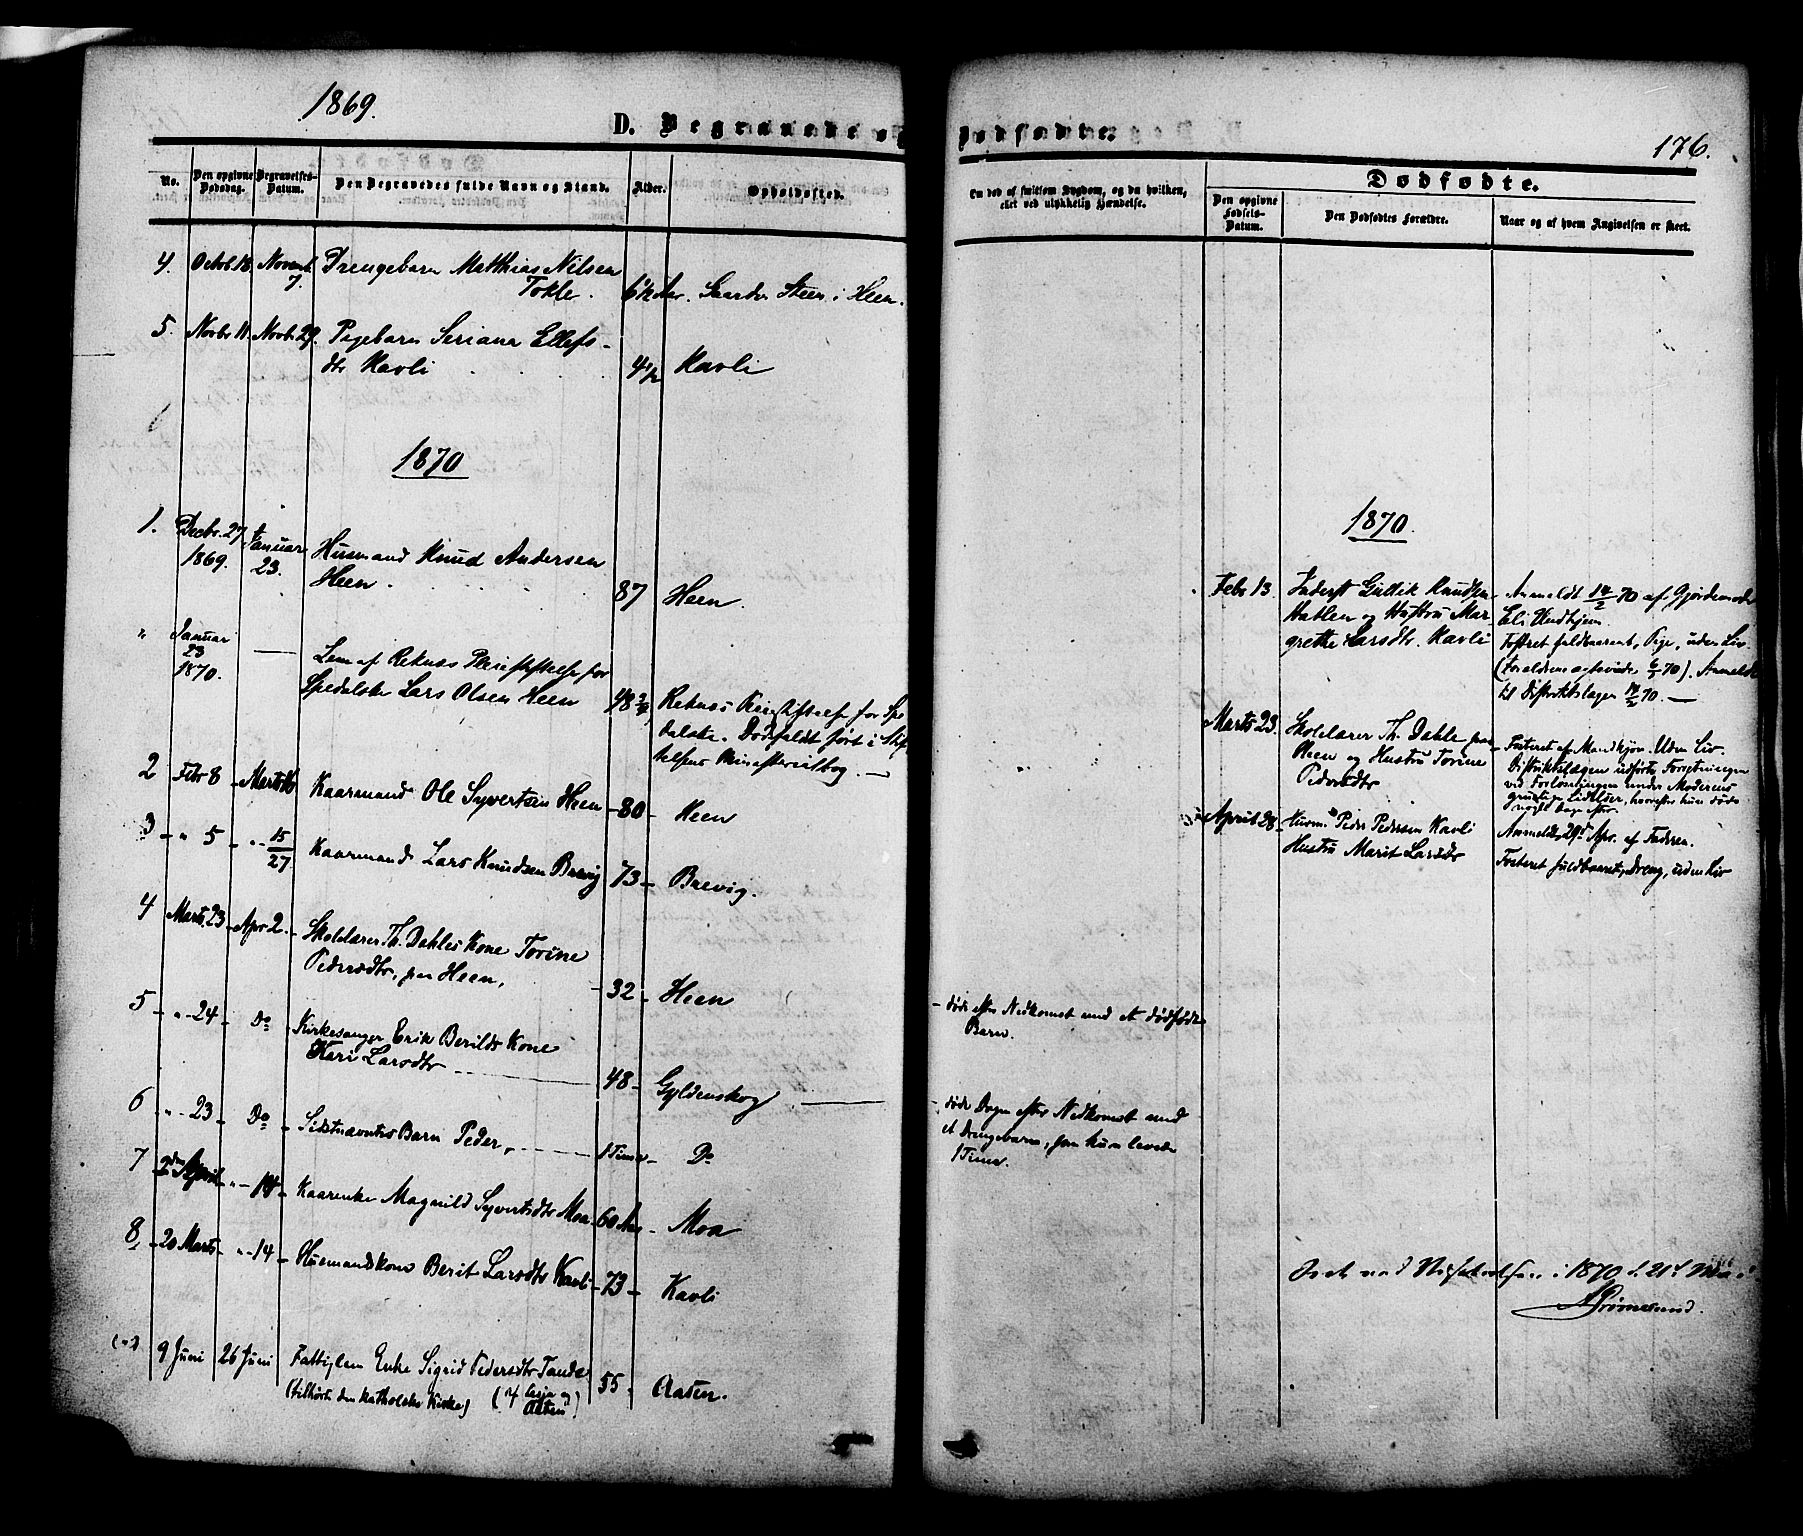 1869.
D. Begravede og
No.
Den opgivne Dødsdag.
Begravelses-Datum.
Den Begravedes fulde Navn og Stand.
Alder.
Opholdssted.
4. Octob. 18. Novemb. 7. Drengebarn Matthias Nilsen
Tokle. 6½ Aar. Heen.
5. Novbr 11. Novbr. 29. Pigebarn Seriana Ellefs-
dtr Kavli 4½ Kavli
6
1870
1. Decbr. 27. 1869. Januar 23. Husmand Knud Andersen
Heen 87 Heen.
" Januar 23 1870. — Lem af Reknæs Pleiestiftelse for
Spedalske Lars Olsen Heen 48 Reknæs Pleiestiftelse for Spe
dalske. Dødsfaldt ført i Stif
telsens Ministerialbog. —
2 Febr 8 - Marts 16 Kaarmand Ole Syvertsen Heen - 80 - Heen
3 - " 5 " - 15/27 Kaarmand Lars Knudsen Brevig 73 - Brevig.
4 Marts 23 - Apr 2. - Skolelærer Th. Dahles Kone Torine
Pedersdtr, paa Heen, - 32 - Heen
5 - " - 24 - Do Kirkesanger Erik Berilds Kone
Kari Larsdtr 48 - Gyldenskog
6 - " - 23 - Do - Sidstnævntes Barn Peder, 1 Time - Do
7 2den April " - 14 - Kaarenke Magnild Syvertsdtr Moa - 60 Aar - Moa
8, - 20 Marts - " - 14 - Husmandskone Berit Larsdtr Kavli - 73 - Kavli
9 Juni 26 Juni Fattiglem Enke Sigrid Pedersdtr Tande 55 - Aasen.
(tilhørte den katholske Kirke)
Dødfødte.
176.
Om død af smitsom Sygdom, og da hvilken,
eller ved ulykkelig Hændelse.
Dødfødte.
Den opgivne Fødsels-Datum.
Den Dødfødtes Forældre.
Naar og af hvem Angivelsen er skeet.
1870.
Febr. 13. Inderst Gullik Knudsen
Hatlen og Hustru Mar
grethe Larsdtr. Kavli
Anmeldt 14/2 70 af Gjordemoder
Eli Vindhjem.
Fostret fuldbaarent, Pige, uden Liv
(Forældrene 70). Anmeldt
til Distriktslægen 70. —
Marts 23. Skolelærer Th. Dahle paa
Heen og Hustru Torine
Pedersdtr
Fosteret af Mandkjøn. Uden Liv.
Distriktslægen udførte Forretningen
ved Forløsningen under Moderens
Lidelser, hvorefter hun døde
nogle Dage efter.
April 28 - Husm. Peder Pedersen Kavli
Hustru Marit Larsdtr
Anmeldt 29d Apr. af Faderen.
Fosteret fuldbaaret, Dreng, uden Liv
- døde efter Nedkomst med et dødfødt
Barn.
- døde Dagen efter Nedkomst med
et Drengebarn, som kun levede
1 Time.
Seet ved Visitatsen i 1870 d. 21d Mai